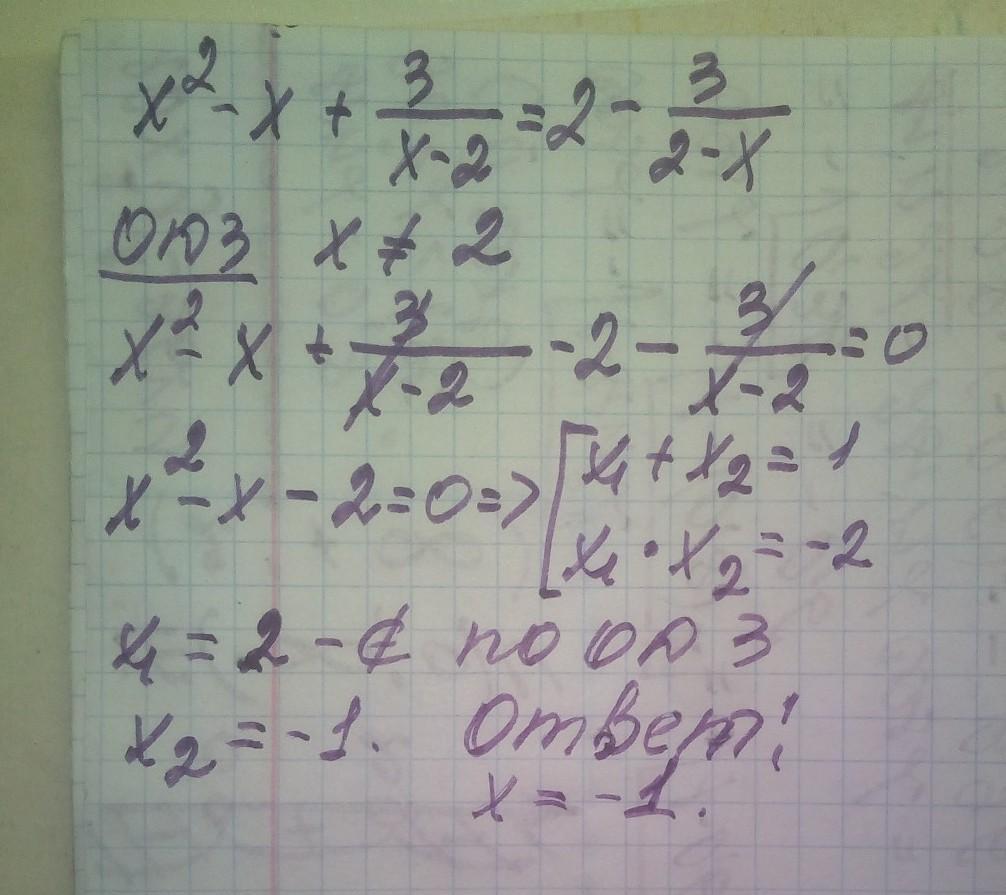 x² - x + 3/(x-2) = 2 - 3/(2-x)
ОДЗ x ≠ 2
x² - x + 3/(x-2) - 2 - 3/(x-2) = 0
x² - x - 2 = 0 => [x₁ + x₂ = 1
x₁ · x₂ = -2
x₁ = 2 - ∉ по ОДЗ
x₂ = -1. Ответ:
x = -1.